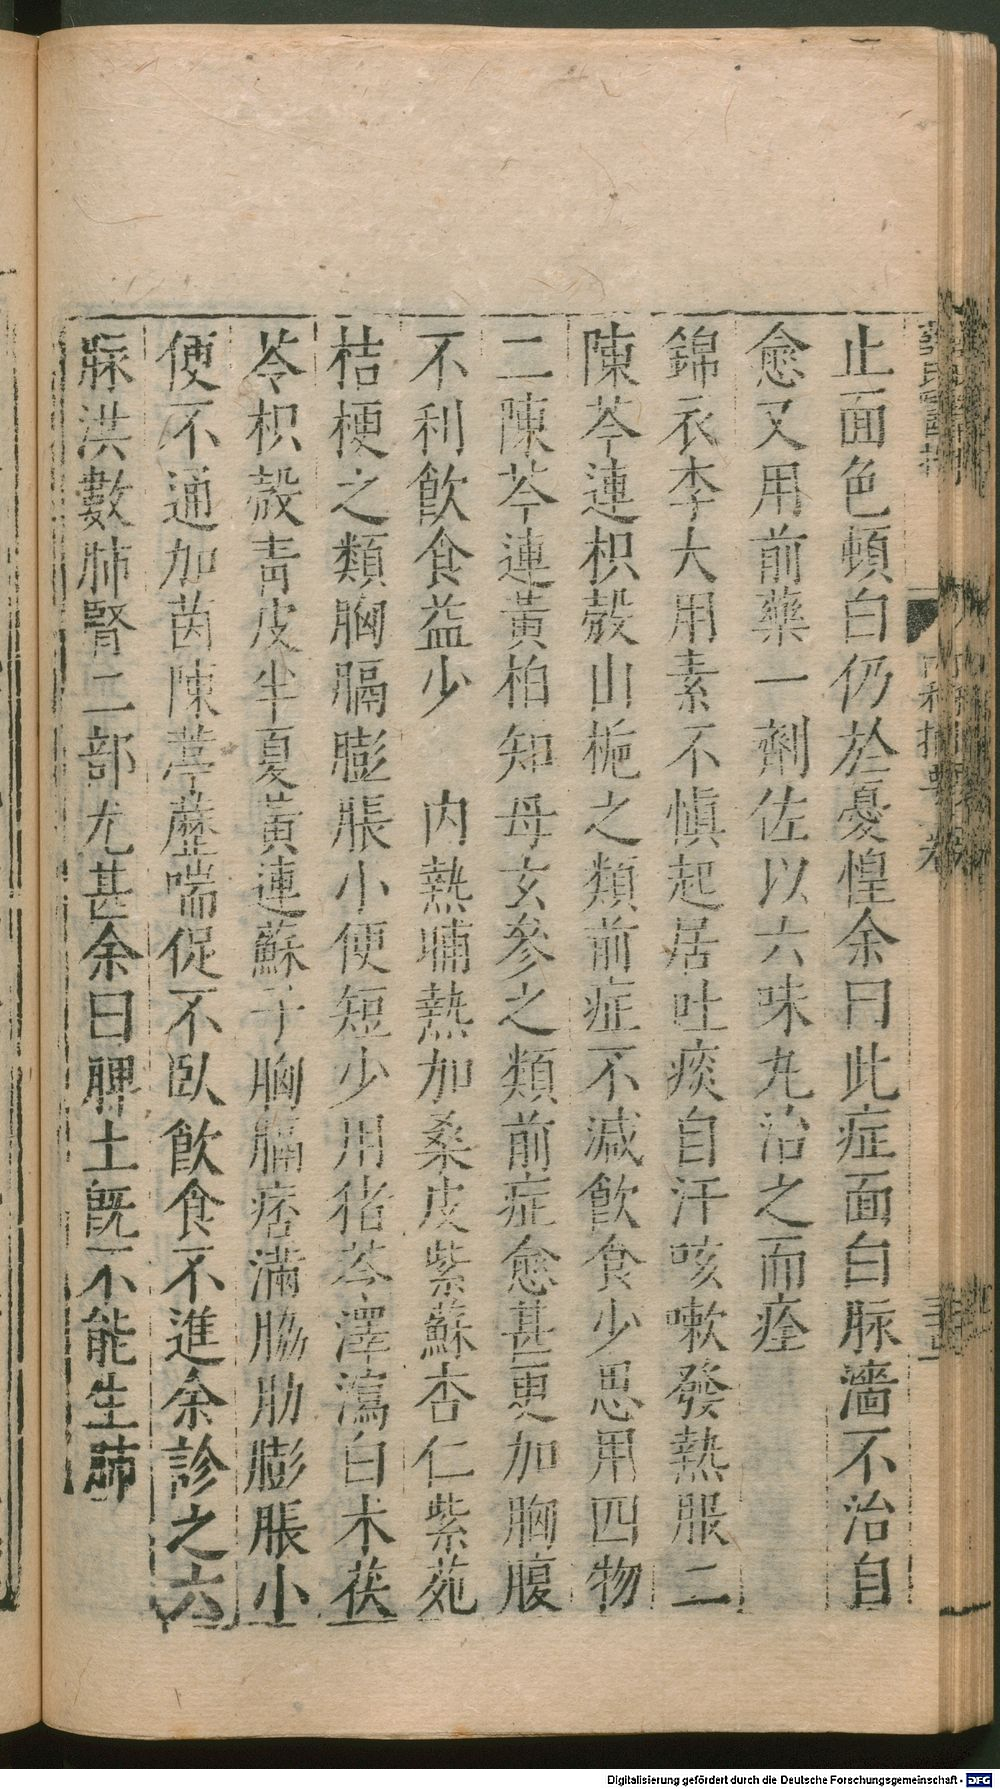 止面色頓白仍於憂惶余曰此症面白脉濇不治自
愈又用前藥一劑佐以六味丸治之而痊
錦衣李大用素不慎起居吐痰自汗咳嗽發熱服二
陳芩連枳殼山梔之類前症不減飲食少思用四物
二陳芩連黃柏知母玄參之類前症愈甚更加胸腹
不利飲食益少　内熱晡熱加桑皮紫蘇杏仁紫菀
桔梗之類胸膈膨脹小便短少用猪苓澤瀉白术茯
苓枳殼青皮半夏黃連蘇子胸膈痞滿脇肋膨脹小
便不通加茵陳葶藶喘促不臥飲食不進余診之六
脉洪數肺腎二部尤甚余曰脾土旣不能生肺
Digitalisierung gefördert durch die Deutsche Forschungsgemeinschaft - DFG